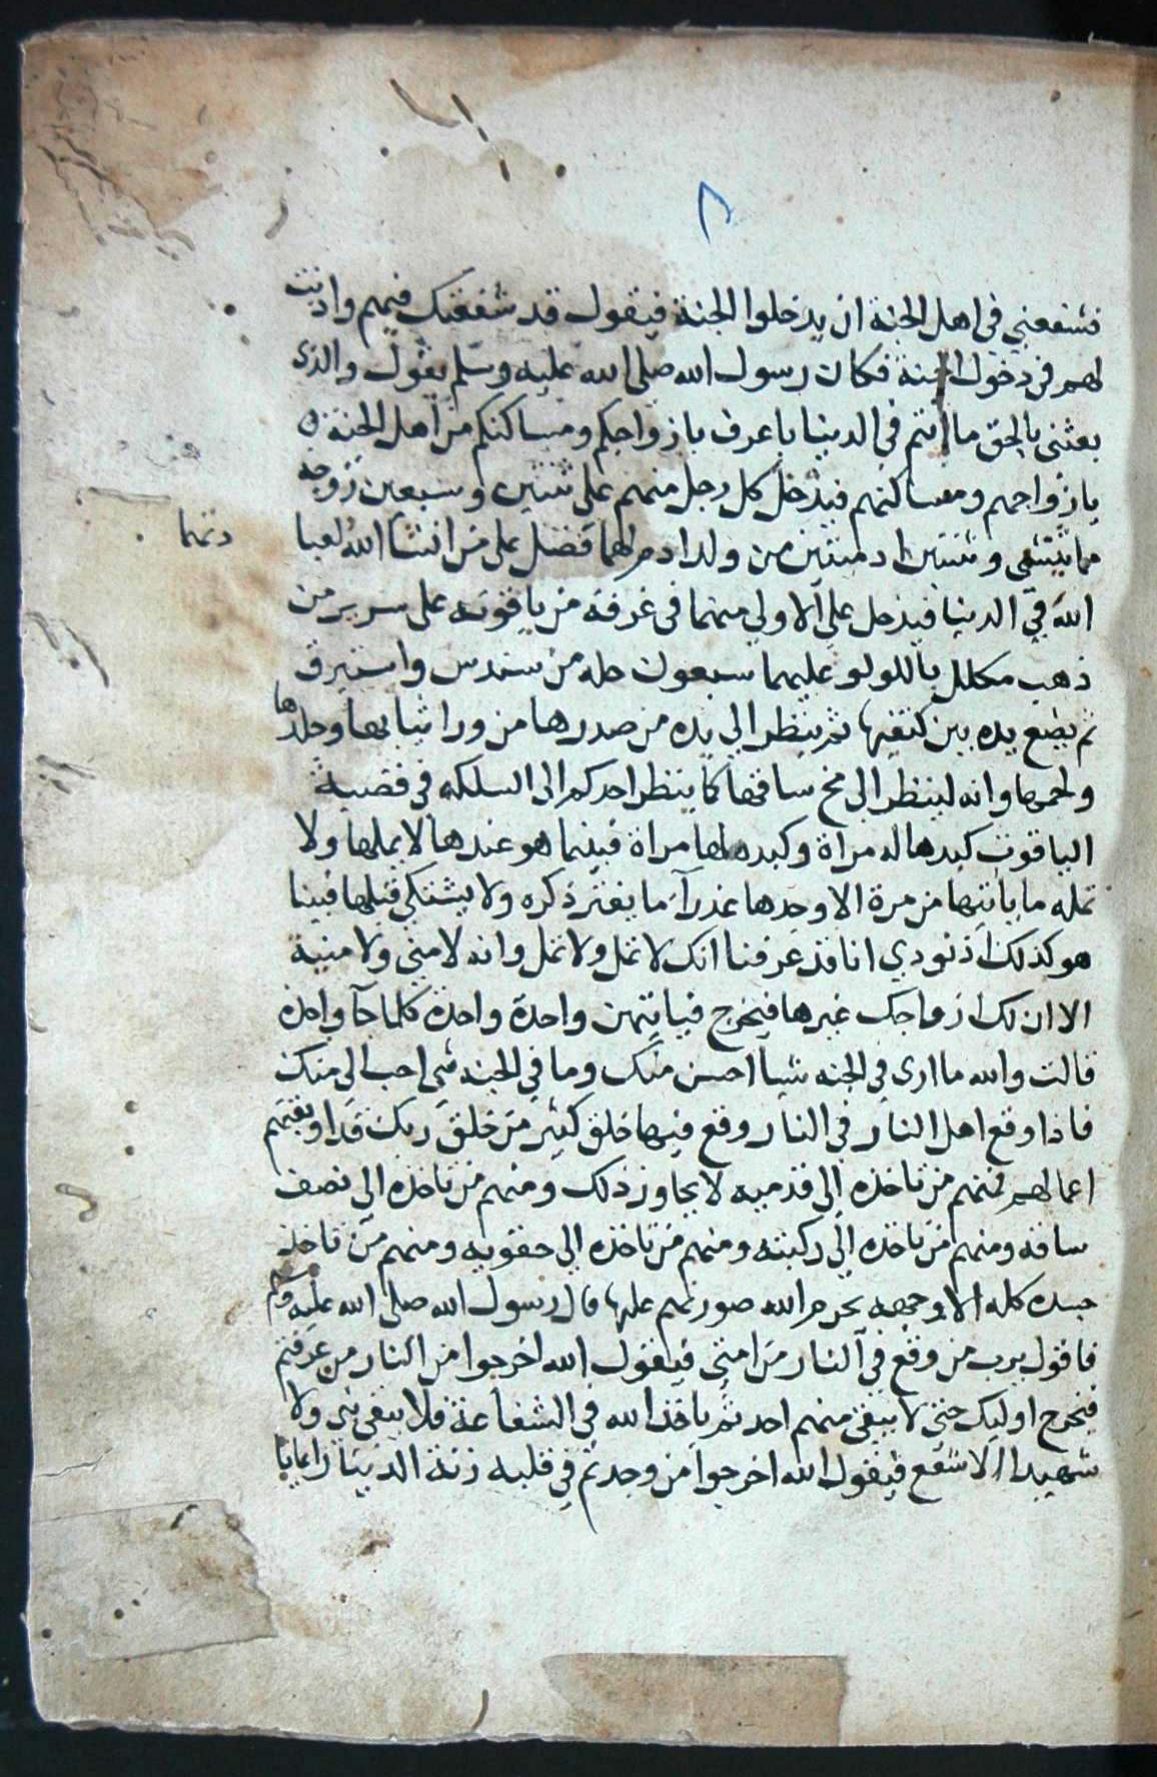 ٨
فشفعني في اهل الجنة ان يدخلوا الجنة فيقول قد شفعتك فيهم واذنت
لهم في دخول الجنة فكان رسول الله صلى الله عليه وسلم يقول والذي
بعثني بالحق ما انتم في الدنيا باعرف بازواجكم ومساكنكم من اهل الجنة
بازواجهم ومساكنهم فيدخل كل رجل منهم على ثنتين وسبعين زوجه
مما ينشئ وثنتين ادميتين من ولد ادم لهما فضل على من انشا الله لعبا
دتهما
الله في الدنيا فيدخل على الاولى منهما في غرفة من ياقوته على سرير من
ذهب مكلل باللولو عليهما سبعون حله من سندس واستبرق
ثم يضع يده بين كتفيها ثم ينظر الى يده من صدرها من ورا ثيابها وجلدها
ولحمها وانه لينظر الى مخ ساقها كما ينظر احدكم الى السلكه في قصبة
الياقوت كبدها له مراة وكبده لها مراة فبينما هو عندها لا يملها ولا
تمله ما ياتيها من مرة الا وجدها عذرآ ما يفتر ذكره ولا يشتكي قبلها فبينا
هو كذلك اذ نودي انا قد عرفنا انك لا تمل ولا تمل وانه لا مني ولا منية
الا ان لك ازواجك غيرها فيخرج فياتيهن واحدة واحدة كلما جآ واحدة
قالت والله ما ارى في الجنه شيا احسن منك وما في الجنه شي احب الى منك
فاذا وقع اهل النار في النار وقع فيها خلق كثير من خلق ربك قد اوبقتهم
اعمالهم فمنهم من تاخذه الى قدميه لا يجاوز ذلك ومنهم من تاخذه الى نصف
ساقه ومنهم من تاخذه الى ركبته ومنهم من تاخذه الى حقويه ومنهم من تاخذ
جسده كله الا وجهه يحرم الله صورتهم عليها قال رسول الله صلى الله عليه وسلم
فاقول يرب من وقع في النار من امتي فيقول الله اخرجوا من النار من عرفتم
فيخرج اوليك حتى لا يبقى منهم احد ثم ياذن الله في الشفاعة فلا يبقى نبي ولا
شهيد الا شفع فيقول الله اخرجوا من وجدتم في قلبه زنة الدينار ايمانا